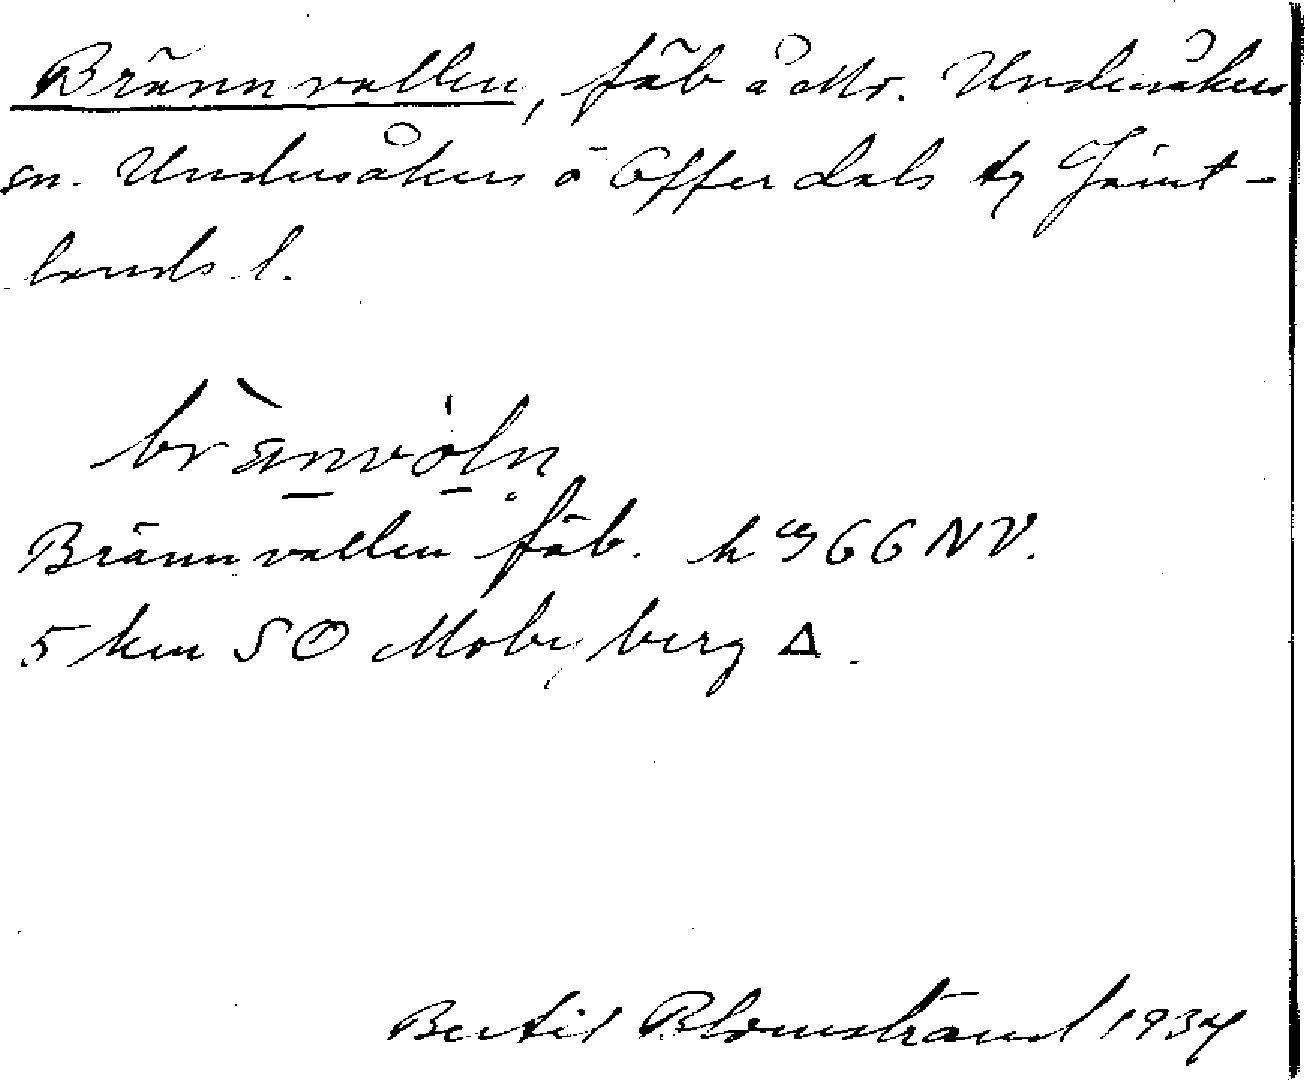 Brännvallen, fäb å Mo. Undersåkers
sn. Undersåkers o Offerdals tg Jämt-
lands l.
Brännvallen fäb. h cy 66 NV.
5 km SO Moby berg Δ.
Bertil Blomstrand 1934